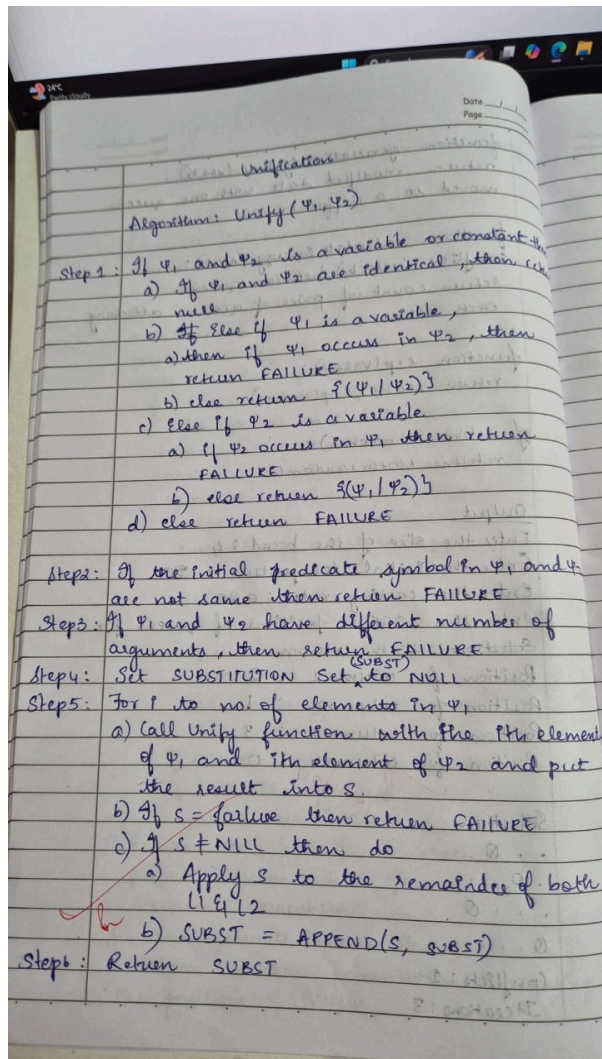 24°C
Partly cloudy
Date
Page
Unification
Algorithm: Unify (Ψ1, Ψ2)
Step 1: If Ψ1 and Ψ2 is a variable or constant
a) If Ψ1 and Ψ2 are identical, then
null
b) Else if Ψ1 is a variable,
a) then if Ψ1 occurs in Ψ2, then
return FAILURE
b) else return {(Ψ1/Ψ2)}
c) Else if Ψ2 is a variable
a) if Ψ2 occurs in Ψ1 then return
FAILURE
b) else return {(Ψ1/Ψ2)}
d) else return FAILURE
Step2: If the initial predicate symbol in Ψ1 and Ψ
are not same then return FAILURE
Step3: If Ψ1 and Ψ2 have different number of
arguments, then return FAILURE
(SUBST)
Step4: Set SUBSTITUTION Set to NULL
Step5: For i to no. of elements in Ψ1
a) Call Unify function with the ith element
of Ψ1 and ith element of Ψ2 and put
the result into S.
b) If S = failure then return FAILURE
c) If S ≠ NILL then do
a) Apply S to the remainder of both
L1 & L2
b) SUBST = APPEND(S, SUBST)
Step6: Return SUBST